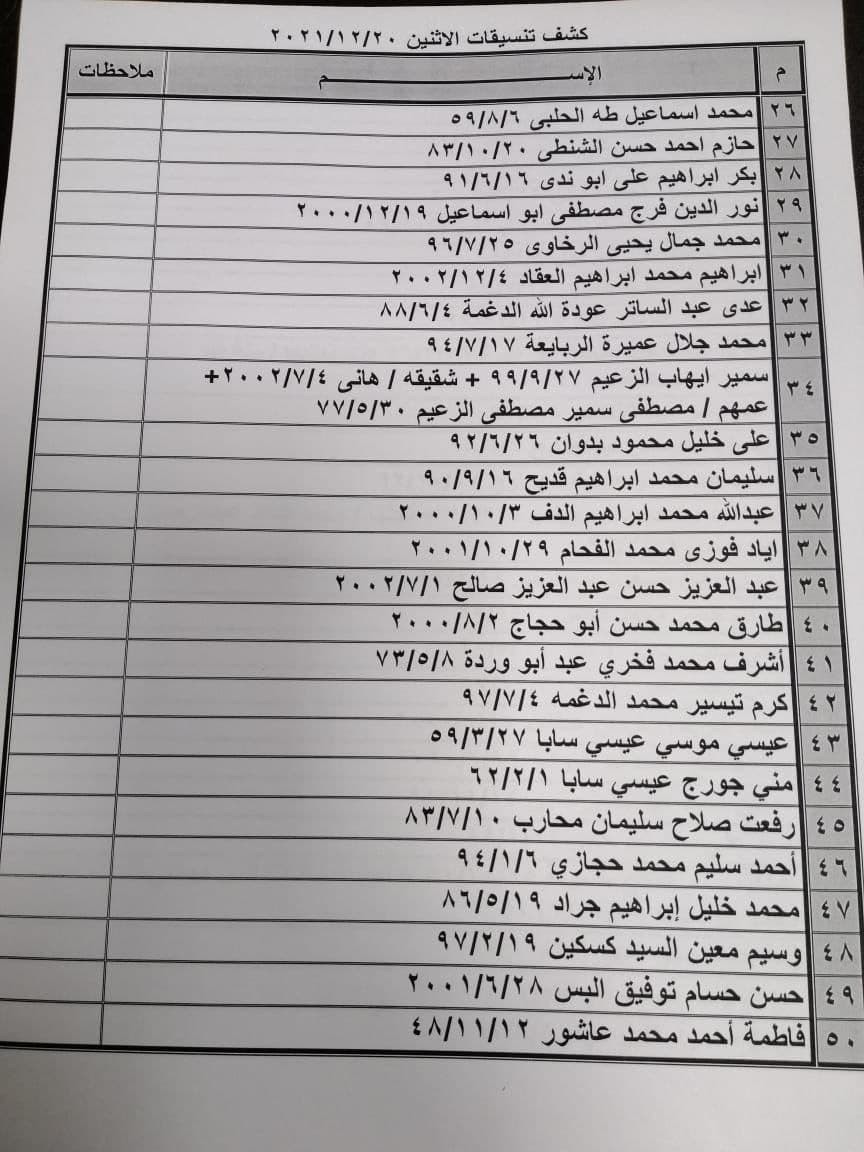 كشف تنسيقات الاثنين ٢٠٢١/١٢/٢٠
م الإســـــم ملاحظات
٢٦ محمد اسماعيل طه الحلبى ٥٩/٨/٦
٢٧ حازم احمد حسن الشنطى ٨٣/١٠/٢٠
٢٨ بكر ابراهيم على ابو ندى ٩١/٦/١٦
٢٩ نور الدين فرج مصطفى ابو اسماعيل ٢٠٠٠/١٢/١٩
٣٠ محمد جمال يحيى الرخاوى ٩٦/٧/٢٥
٣١ ابراهيم محمد ابراهيم العقاد ٢٠٠٢/١٢/٤
٣٢ عدى عبد الساتر عودة الله الدغمة ٨٨/٦/٤
٣٣ محمد جلال عميرة الربايعة ٩٤/٧/١٧
٣٤ سمير ايهاب الزعيم ٩٩/٩/٢٧ + شقيقه / هانى ٢٠٠٢/٧/٤+
عمهم / مصطفى سمير مصطفى الزعيم ٧٧/٥/٣٠
٣٥ على خليل محمود بدوان ٩٢/٦/٢٦
٣٦ سليمان محمد ابراهيم قديح ٩٠/٩/١٦
٣٧ عبدالله محمد ابراهيم الدف ٢٠٠٠/١٠/٣
٣٨ اياد فوزى محمد الفحام ٢٠٠١/١٠/٢٩
٣٩ عبد العزيز حسن عبد العزيز صالح ٢٠٠٢/٧/١
٤٠ طارق محمد حسن أبو حجاج ٢٠٠٠/٨/٢
٤١ أشرف محمد فخري عبد أبو وردة ٧٣/٥/٨
٤٢ كرم تيسير محمد الدغمه ٩٧/٧/٤
٤٣ عيسي موسي عيسي سابا ٥٩/٣/٢٧
٤٤ مني جورج عيسي سابا ٦٢/٢/١
٤٥ رفعت صلاح سليمان محارب ٨٣/٧/١٠
٤٦ أحمد سليم محمد حجازي ٩٤/١/٦
٤٧ محمد خليل إبراهيم جراد ٨٦/٥/١٩
٤٨ وسيم معين السيد كسكين ٩٧/٢/١٩
٤٩ حسن حسام توفيق البس ٢٠٠١/٦/٢٨
٥٠ فاطمة أحمد محمد عاشور ٤٨/١١/١٢